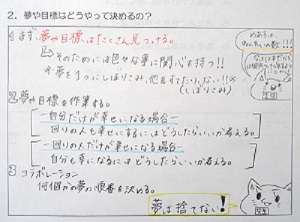 2. 夢や目標はどうやって決めるの?
1 まず、夢や目標はたくさん見つける。
そのためには色々な事に関心を持つ!!
夢を1つにしぼりこみ、他を捨てたりしない!!
(しぼりこみ)
2 夢や目標を作業する。
自分だけが幸せになる場合
回りの人も幸せにするにはどうしたらいいか考える。
回りの人だけが幸せになる場合
自分も幸になるにはどうしたらいいか考える。
3 コラボレーション
何個かの夢の順番を決める。
夢は捨てない!